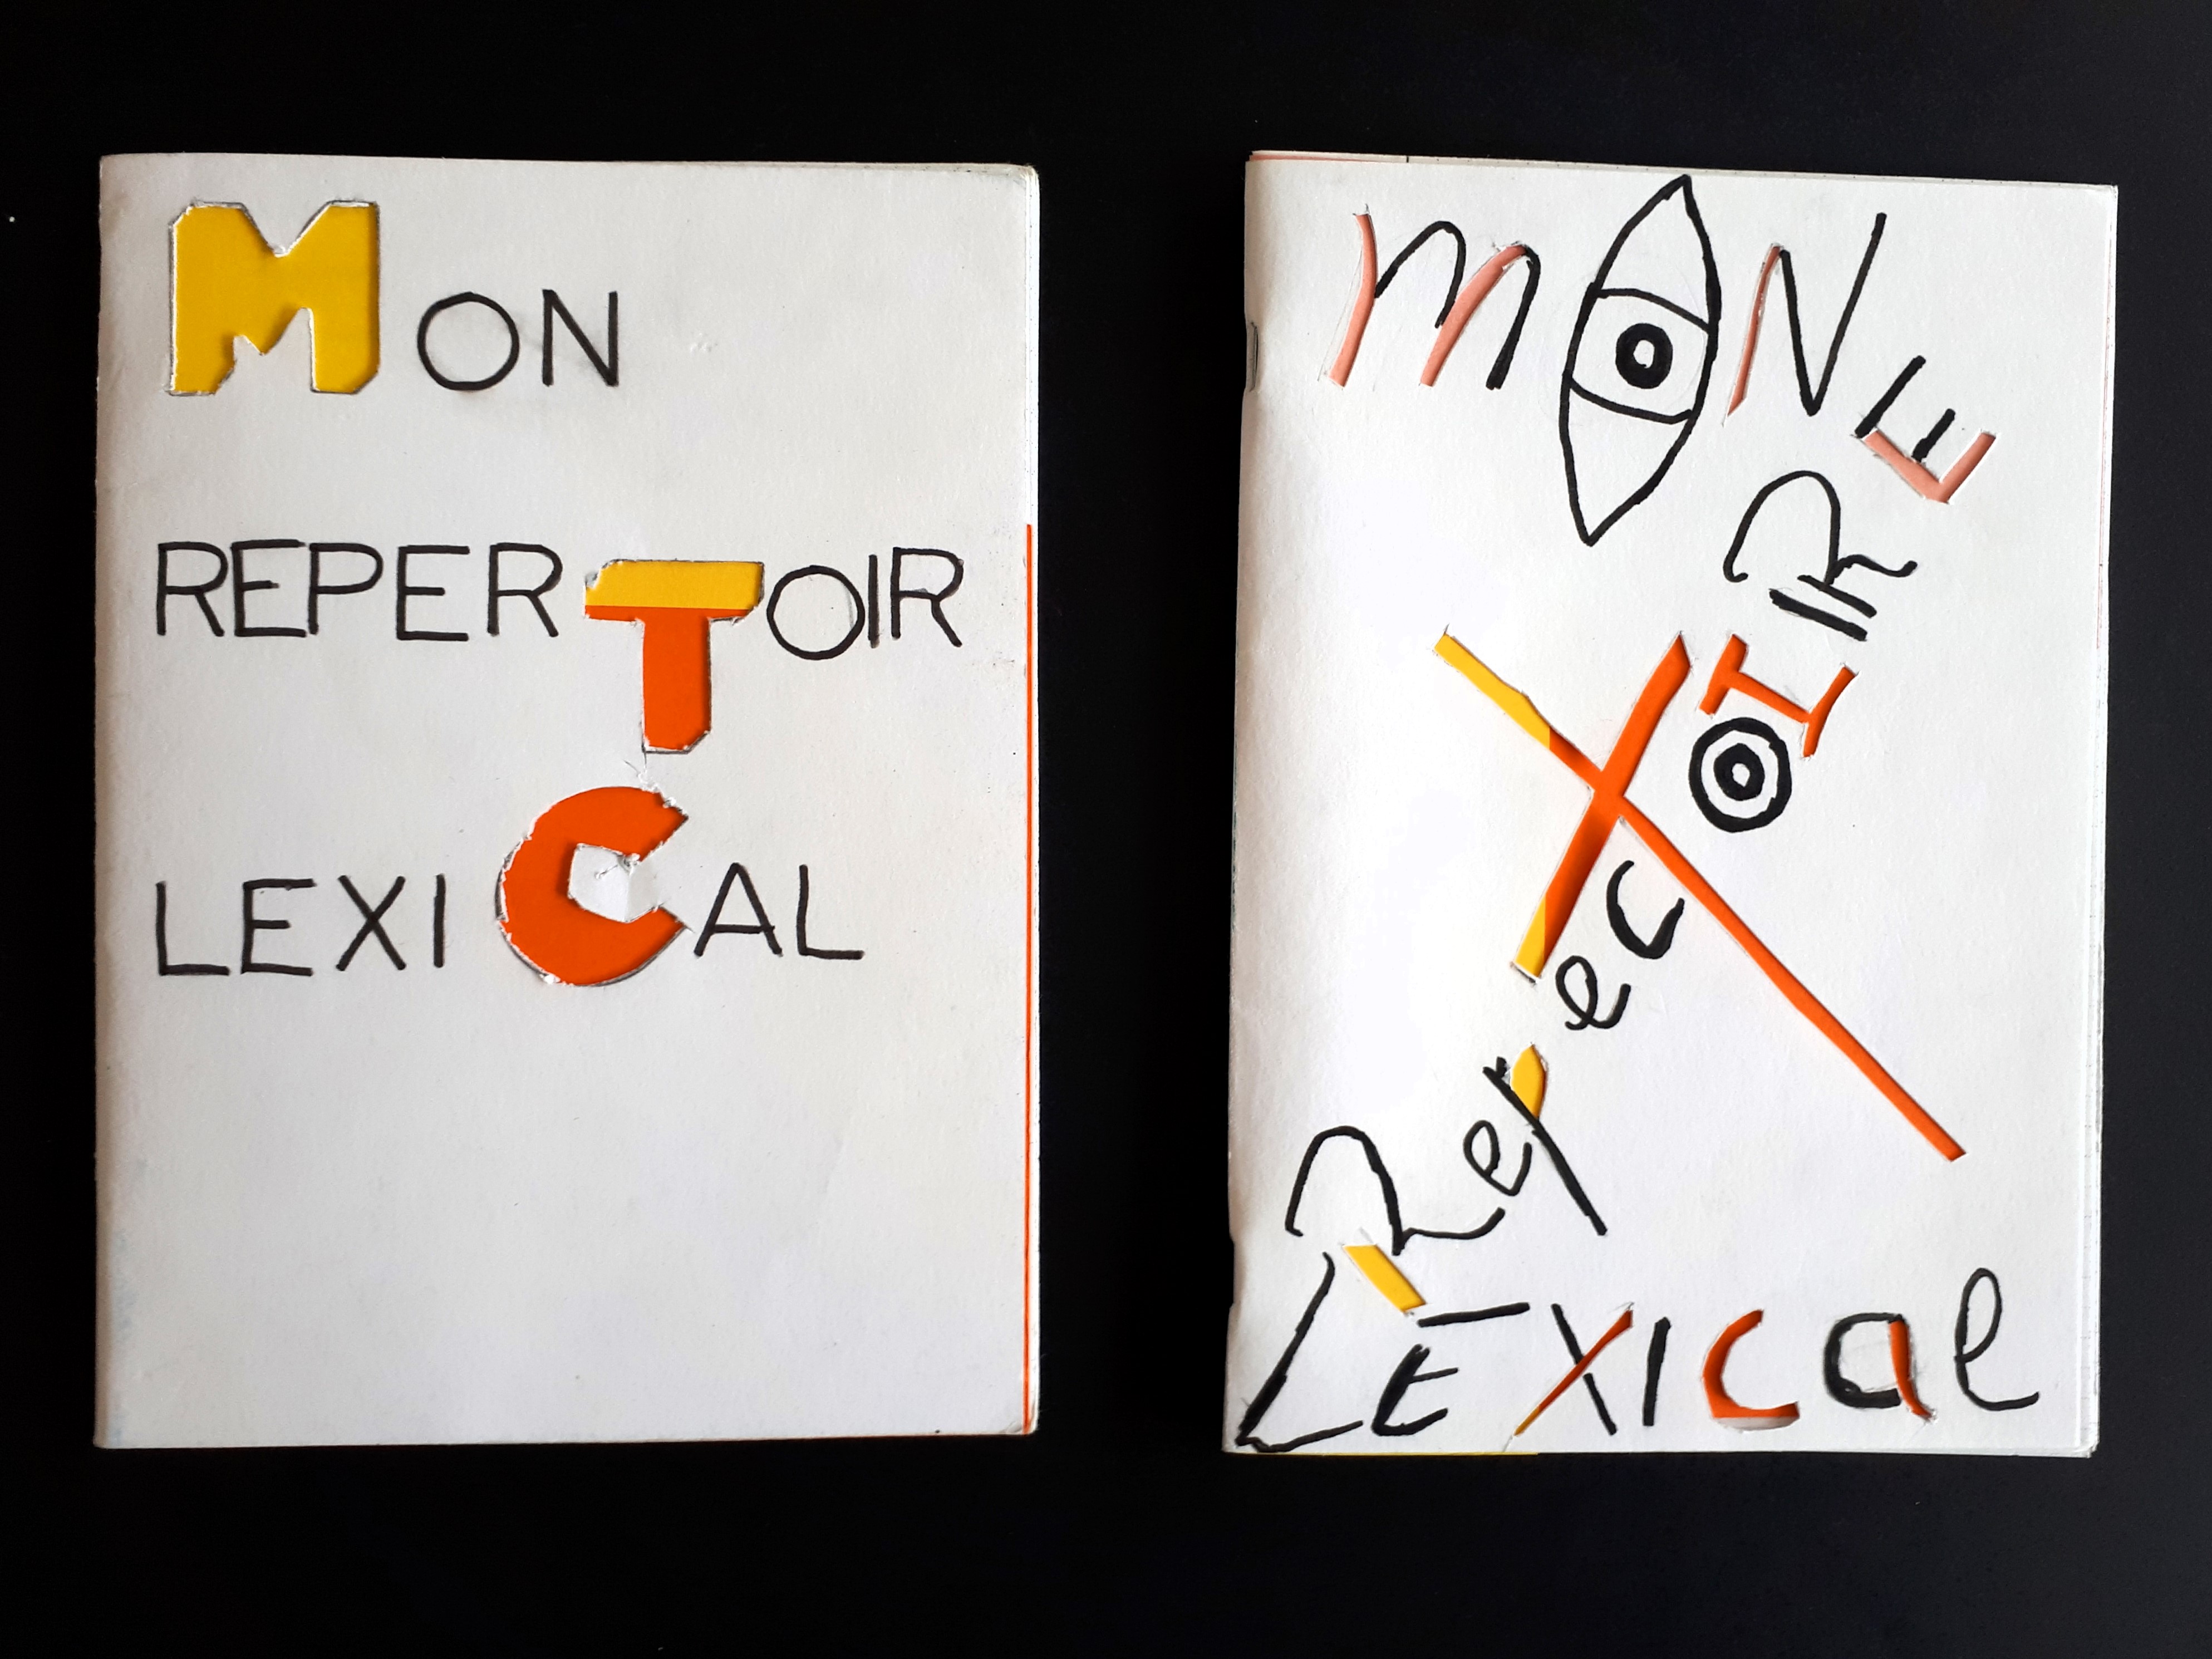 MON
REPERTOIR
LEXICAL
MON
RepertOIRE
LEXICal